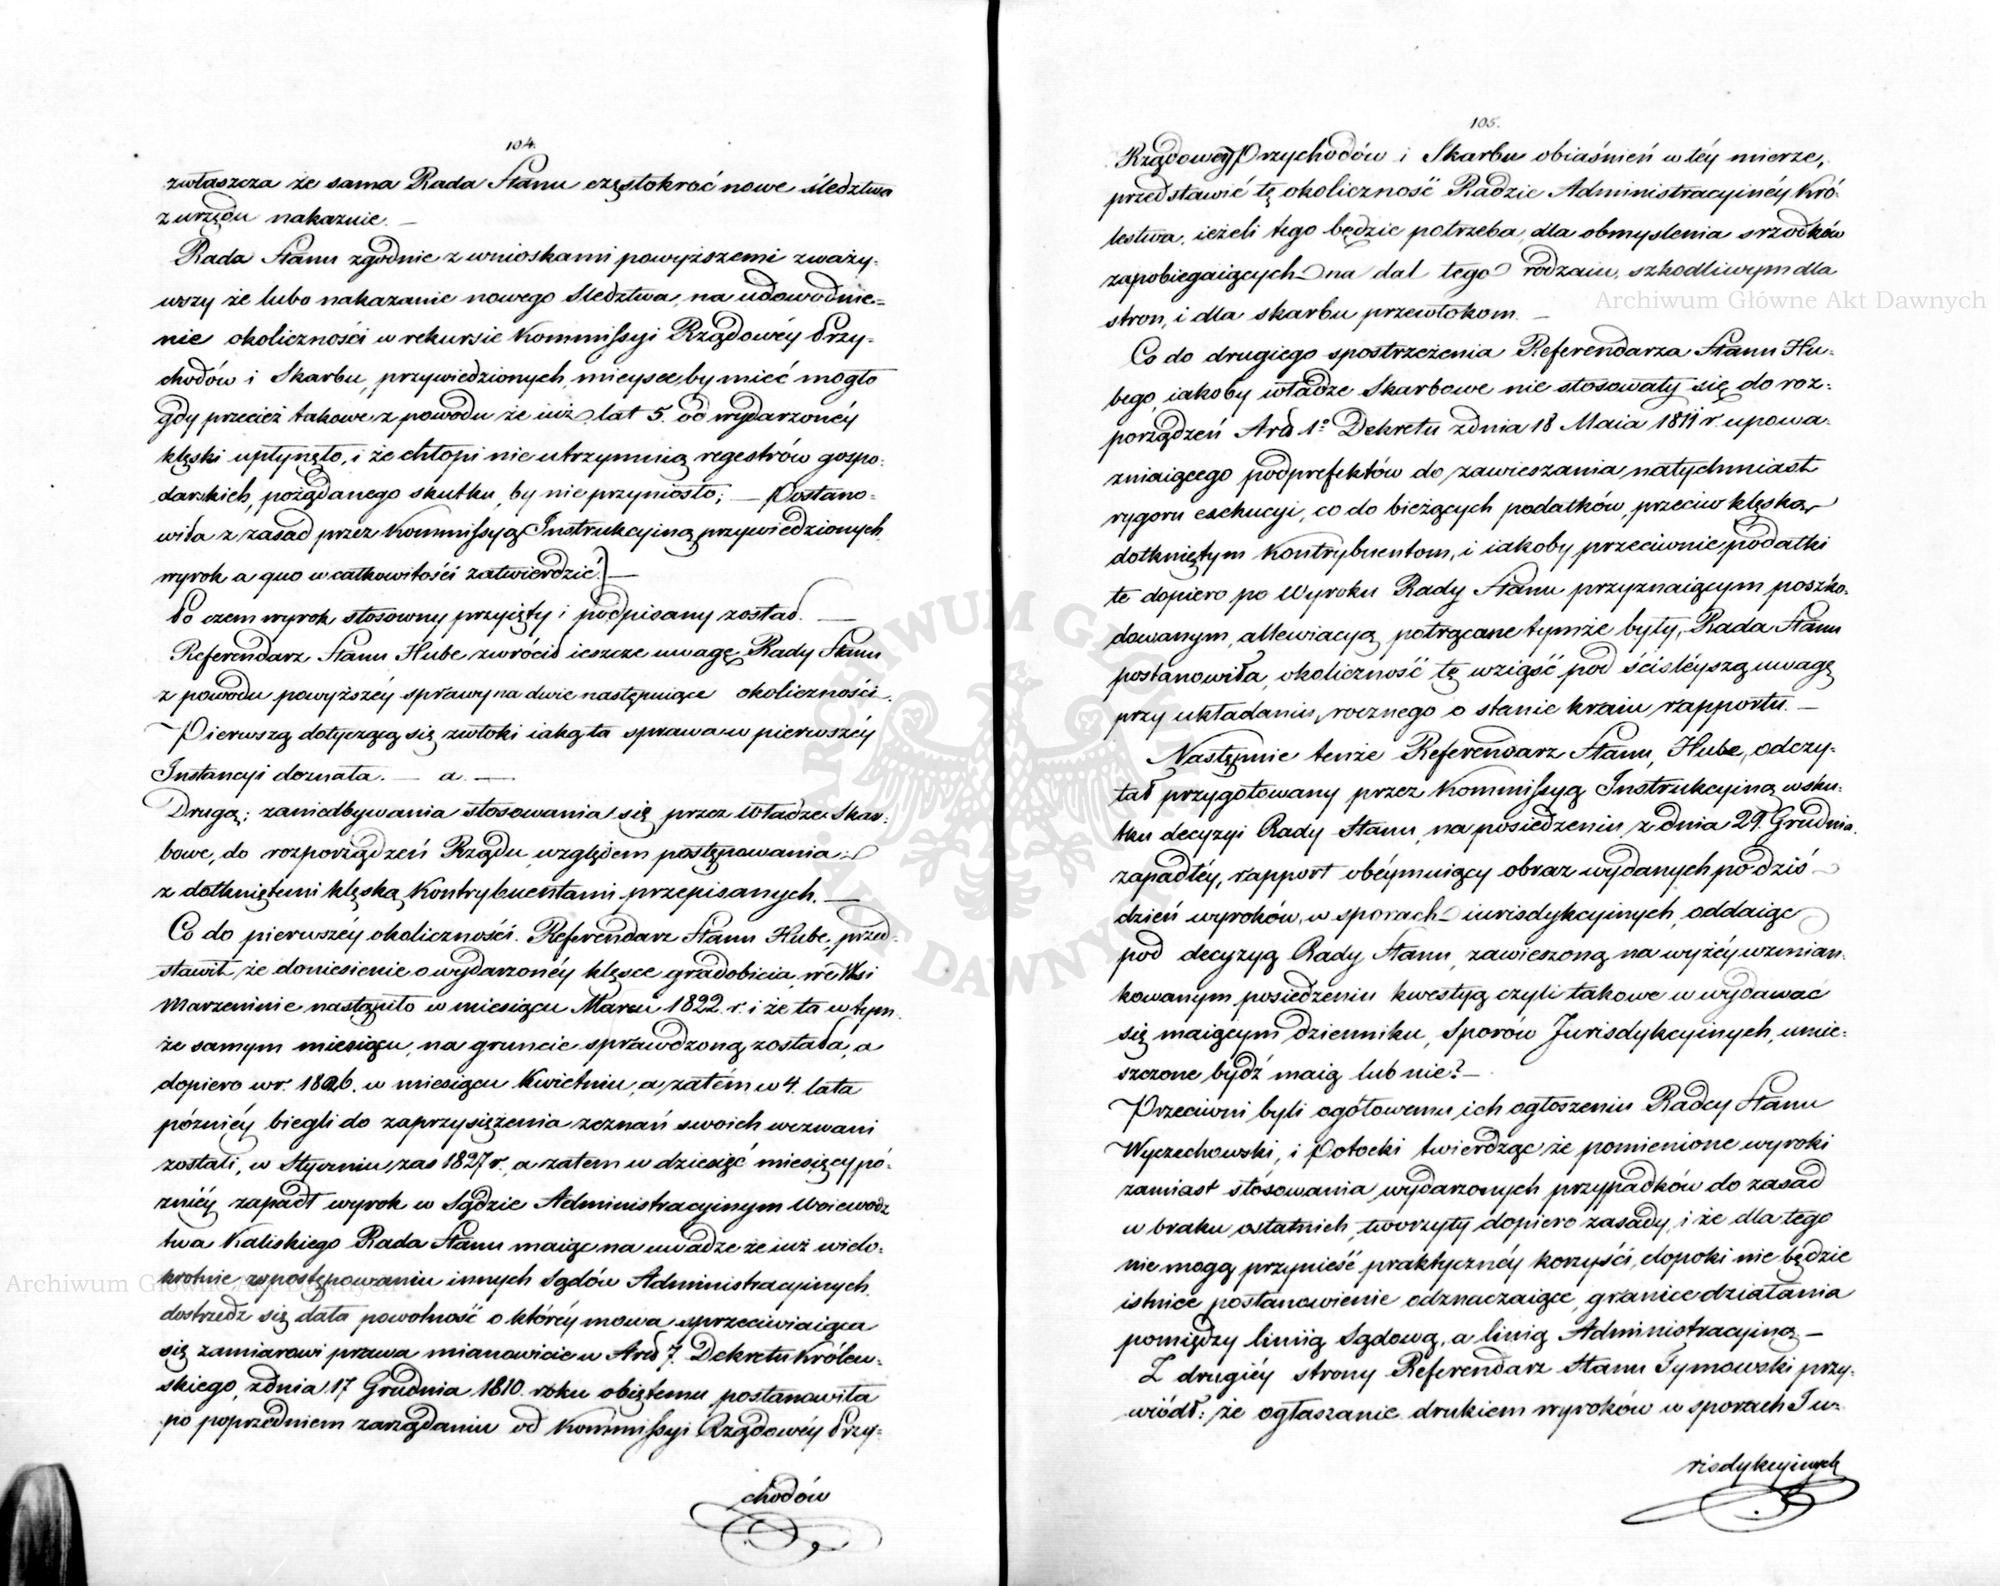 104.
zwłaszcza że sama Rada Stanu częstokroć nowe śledztwa
z urzędu nakazuie. —
Rada Stanu zgodnie z wnioskami powyższemi zważy-
wszy że lubo nakazanie nowego śledztwa, na udowodnie-
nie okoliczności w rekursie Kommissyi Rządowéy Przy-
chodów i Skarbu, przywiedzionych, mieysce, by mieć mogło
gdy przecież takowe z powodu że iuż lat 5. od wydarzonéy
klęski upłynęło, i że chłopi nie utrzymuią regestrów gospo-
darskich, pożądanego skutku, by nie przyniosło; — Postano-
wiła z zasad przez Kommissyą Instrukcyiną przywiedzionych
wyrok a quo w całkowitości zatwierdzić.] —
Po czem wyrok stosowny przyięty i podpisany został. —
Referendarz Stanu Hube zwrócił ieszcze uwagę Rady Stanu
z powodu powyższéy sprawy na dwie następuiące okoliczności.
Pierwszą dotyczącą się zwłoki iaką ta sprawa w pierwszéy
Instancyi doznała. — a. —
Drugą; zaniedbywania stosowania się przez Władze Skar-
bowe, do rozporządzeń Rządu, względem postępowania
z dotkniętemi klęską Kontrybuentami przepisanych. —
Co do pierwszéy okoliczności. Referendarz Stanu Hube, przed-
stawił, że doniesienie o wydarzonéy klęsce gradobicia, we Wsi
Marzeninie nastąpiło w miesiącu Marcu 1822. r. i że ta w tym-
że samym miesiącu, na gruncie sprawdzoną została, a
dopiero w r. 1826. w miesiącu Kwietniu, a zatém w 4. lata
późniéy biegli do zaprzysiężenia zeznań swoich wezwani
zostali, w Styczniu zas 1827 r. a zatem w dziesięć miesięcy pó-
źniéy zapadł wyrok w Sądzie Administracyinym Woiewódz
twa Kaliskiego Rada Stanu maiąc na uwadze że iuż wielo-
krotnie w postępowaniu innych Sądów Administracyinych
dostrzedz się dała powolność o któréy mowa, sprzeciwiaiąca
się zamiarowi prawa mianowicie w Art 7. Dekretu Królew-
skiego, z dnia 17 Grudnia 1810. roku obiętemu, postanowiła
po poprzedniem zarządaniu od Kommissyi Rządowéy Przy-
chodów
105.
Rządowéy Przychodów i Skarbu obiaśnień w téy mierze,
przedstawić tę okoliczność Radzie Administracyinéy Kró-
lestwa, ieżeli tego będzie potrzeba, dla obmyslenia srzodków
zapobiegaiących na dal tego rodzaiu, szkodliwym dla
stron, i dla skarbu przewłokom. —
Co do drugiego spostrzeżenia Referendarza Stanu Hu-
bego, iakoby władze Skarbowe nie stosowały się do roz-
porządzeń Art 1º Dekretu z dnia 18 Maia 1811 r. upowa-
żniaiącego podprefektów do zawieszania natychmiast
rygoru exekucyi, co do bieżących podatków, przeciw klęską
dotkniętym Kontrybuentom, i iakoby przeciwnie podatki
te dopiero po Wyroku Rady Stanu przyznaiącym poszko-
dowanym, allewiacyą potrącane tymże były, Rada Stanu
postanowiła, okoliczność tę wziąść pod ściśléyszą uwagę
przy układaniu, rocznego o stanie kraiu rapportu. —
Następnie tenże Referendarz Stanu, Hube, odczy-
tał przygotowany przez Kommissyą Instrukcyiną w sku-
tku decyzyi Rady Stanu, na posiedzeniu z dnia 29. Grudnia
zapadłéy, rapport obéymuiący obraz wydanych po dziś
dzień wyroków, w sporach iurisdykcyinych, oddaiąc
pod decyzyą Rady Stanu, zawieszoną na wyżéy wzmian-
kowanym posiedzeniu kwestyą czyli takowe w wydawać
się maiącym dzienniku, Sporów Jurisdykcyinych, umie-
szczone bydź maią lub nie? —
Przeciwni byli ogółowemu ich ogłoszeniu Radcy Stanu
Wyczechowski, i Potocki twierdząc że pomienione wyroki
zamiast stósowania wydarzonych przypadków do zasad
w braku ostatnich, tworzyły dopiero zasady, i że dla tego
nie mogą przynieść praktycznéy korzyści, dopoki nie będzie
istnieć postanowienie odznaczaiące, granice działania
pomiędzy liniią Sądową, a linią Administracyiną. —
Z drugiéy strony Referendarz Stanu Tymowski przy-
wiódł: że ogłaszanie drukiem wyroków w sporach Ju-
risdykcyinych
Archiwum Główne Akt Dawnych
Archiwum Główne Akt Dawnych
ARCHIWUM GŁÓWNE AKT DAWNYCH